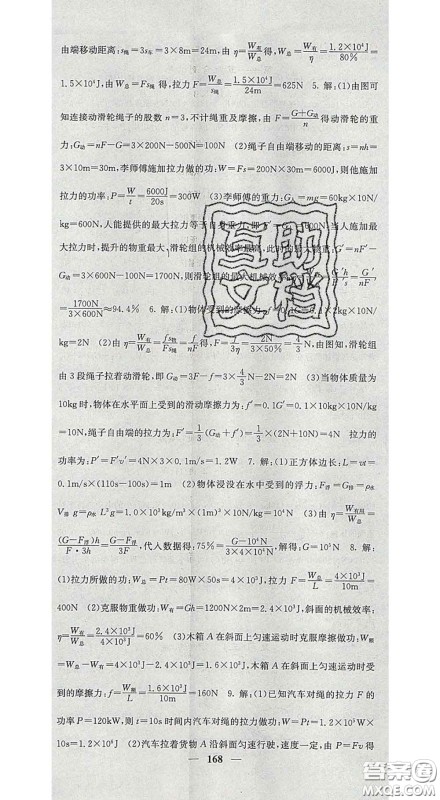 由端移动距离:s绳=3s车=3×8m=24m,由η=W有/W总得,W总=W有/η=1.2×10⁴J/80%=
1.5×10⁴J,由W总=Fs绳得,拉力F=W总/s绳=1.5×10⁴J/24m=625N 5. 解:(1)由图可
知连接动滑轮绳子的股数n=3,不计绳重及摩擦,由F=G+G动/n得动滑轮的重
力:G动=nF-G=3×200N-500N=100N (2)绳子自由端移动的距离:s=nh=
3×10m=30m,李师傅施加拉力做的功:W=Fs=200N×30m=6000J,则他施加
拉力的功率:P=W/t=6000J/20s=300W (3)李师傅的重力:G人=mg=60kg×10N/
kg=600N,人能提供的最大拉力等于自身重力,即F′=G人=600N 当人施加最
大拉力时,提升的物重最大,滑轮组的机械效率最高,此时的最大物重:G′=nF′-
G动=3×600N-100N=1700N,则滑轮组的最大机械效率 G′h/F′s=G′/nF′
=1700N/3×600N≈94.4% 6. 解:(1)物体受到的摩擦力 10N/
kg=2N (2)由η=W有/W总=fs物/Fs绳=f/nF得,F=f/3η=2N/3×50%=4/3N,由图知,滑轮组
由3段绳子拉着动滑轮,即G动=3F-f=3×4/3N-2N=2N (3)当物体质量为
10kg时,物体在水平面上受到的滑动摩擦力为:f′=0.1G′=0.1×10kg×10N/kg
=10N,绳子自由端的拉力为:F′=1/3(G动+f′)=1/3×(2N+10N)=4N 拉力的
功率为:P′=F′v′=4N×3×0.1m/s=1.2W 7. 解:(1)正方体边长:L=vt=
0.1m/s×(110s-100s)=1m (2)物体浸没在水中受到的浮力:F浮=G排=ρ水
V排g=ρ水L³g=1.0×10³kg/m³×(1m)³×10N/kg=10⁴N (3)由η=W有用/W总=
(G-F浮)h/F·3h=G-F浮/3F,代人数据得:75%=G-10⁴N/3×4×10⁴N,解得:G=10⁵N 8. 解:
(1)拉力所做的功:W总=Pt=80W×50s=4×10³J,拉力F=W总/L=4×10³J/10m=
400N (2)克服物重做的功:W有=Gh=1200N×2m=2.4×10³J,斜面的机械效率:
η=W有/W总=2.4×10³J/4×10³J=60% (3)木箱A在斜面上匀速运动时克服摩擦做功:W额
=W总-W有=4×10³J-2.4×10³J=1.6×10³J,木箱A在斜面上匀速运动时受
到的摩擦力:f=W额/L=1.6×10³J/10m=160N 9. 解:(1)已知汽车对绳的拉力F的
功率P=120kW,则t=10s时间内汽车对绳的拉力做功:W总=Pt=1.2×10⁵W×
10s=1.2×10⁶J (2)汽车拉着货物A沿斜面匀速行驶,速度一定,由P=Fv得
168
互助
文档
答案圈
MXQE.COM